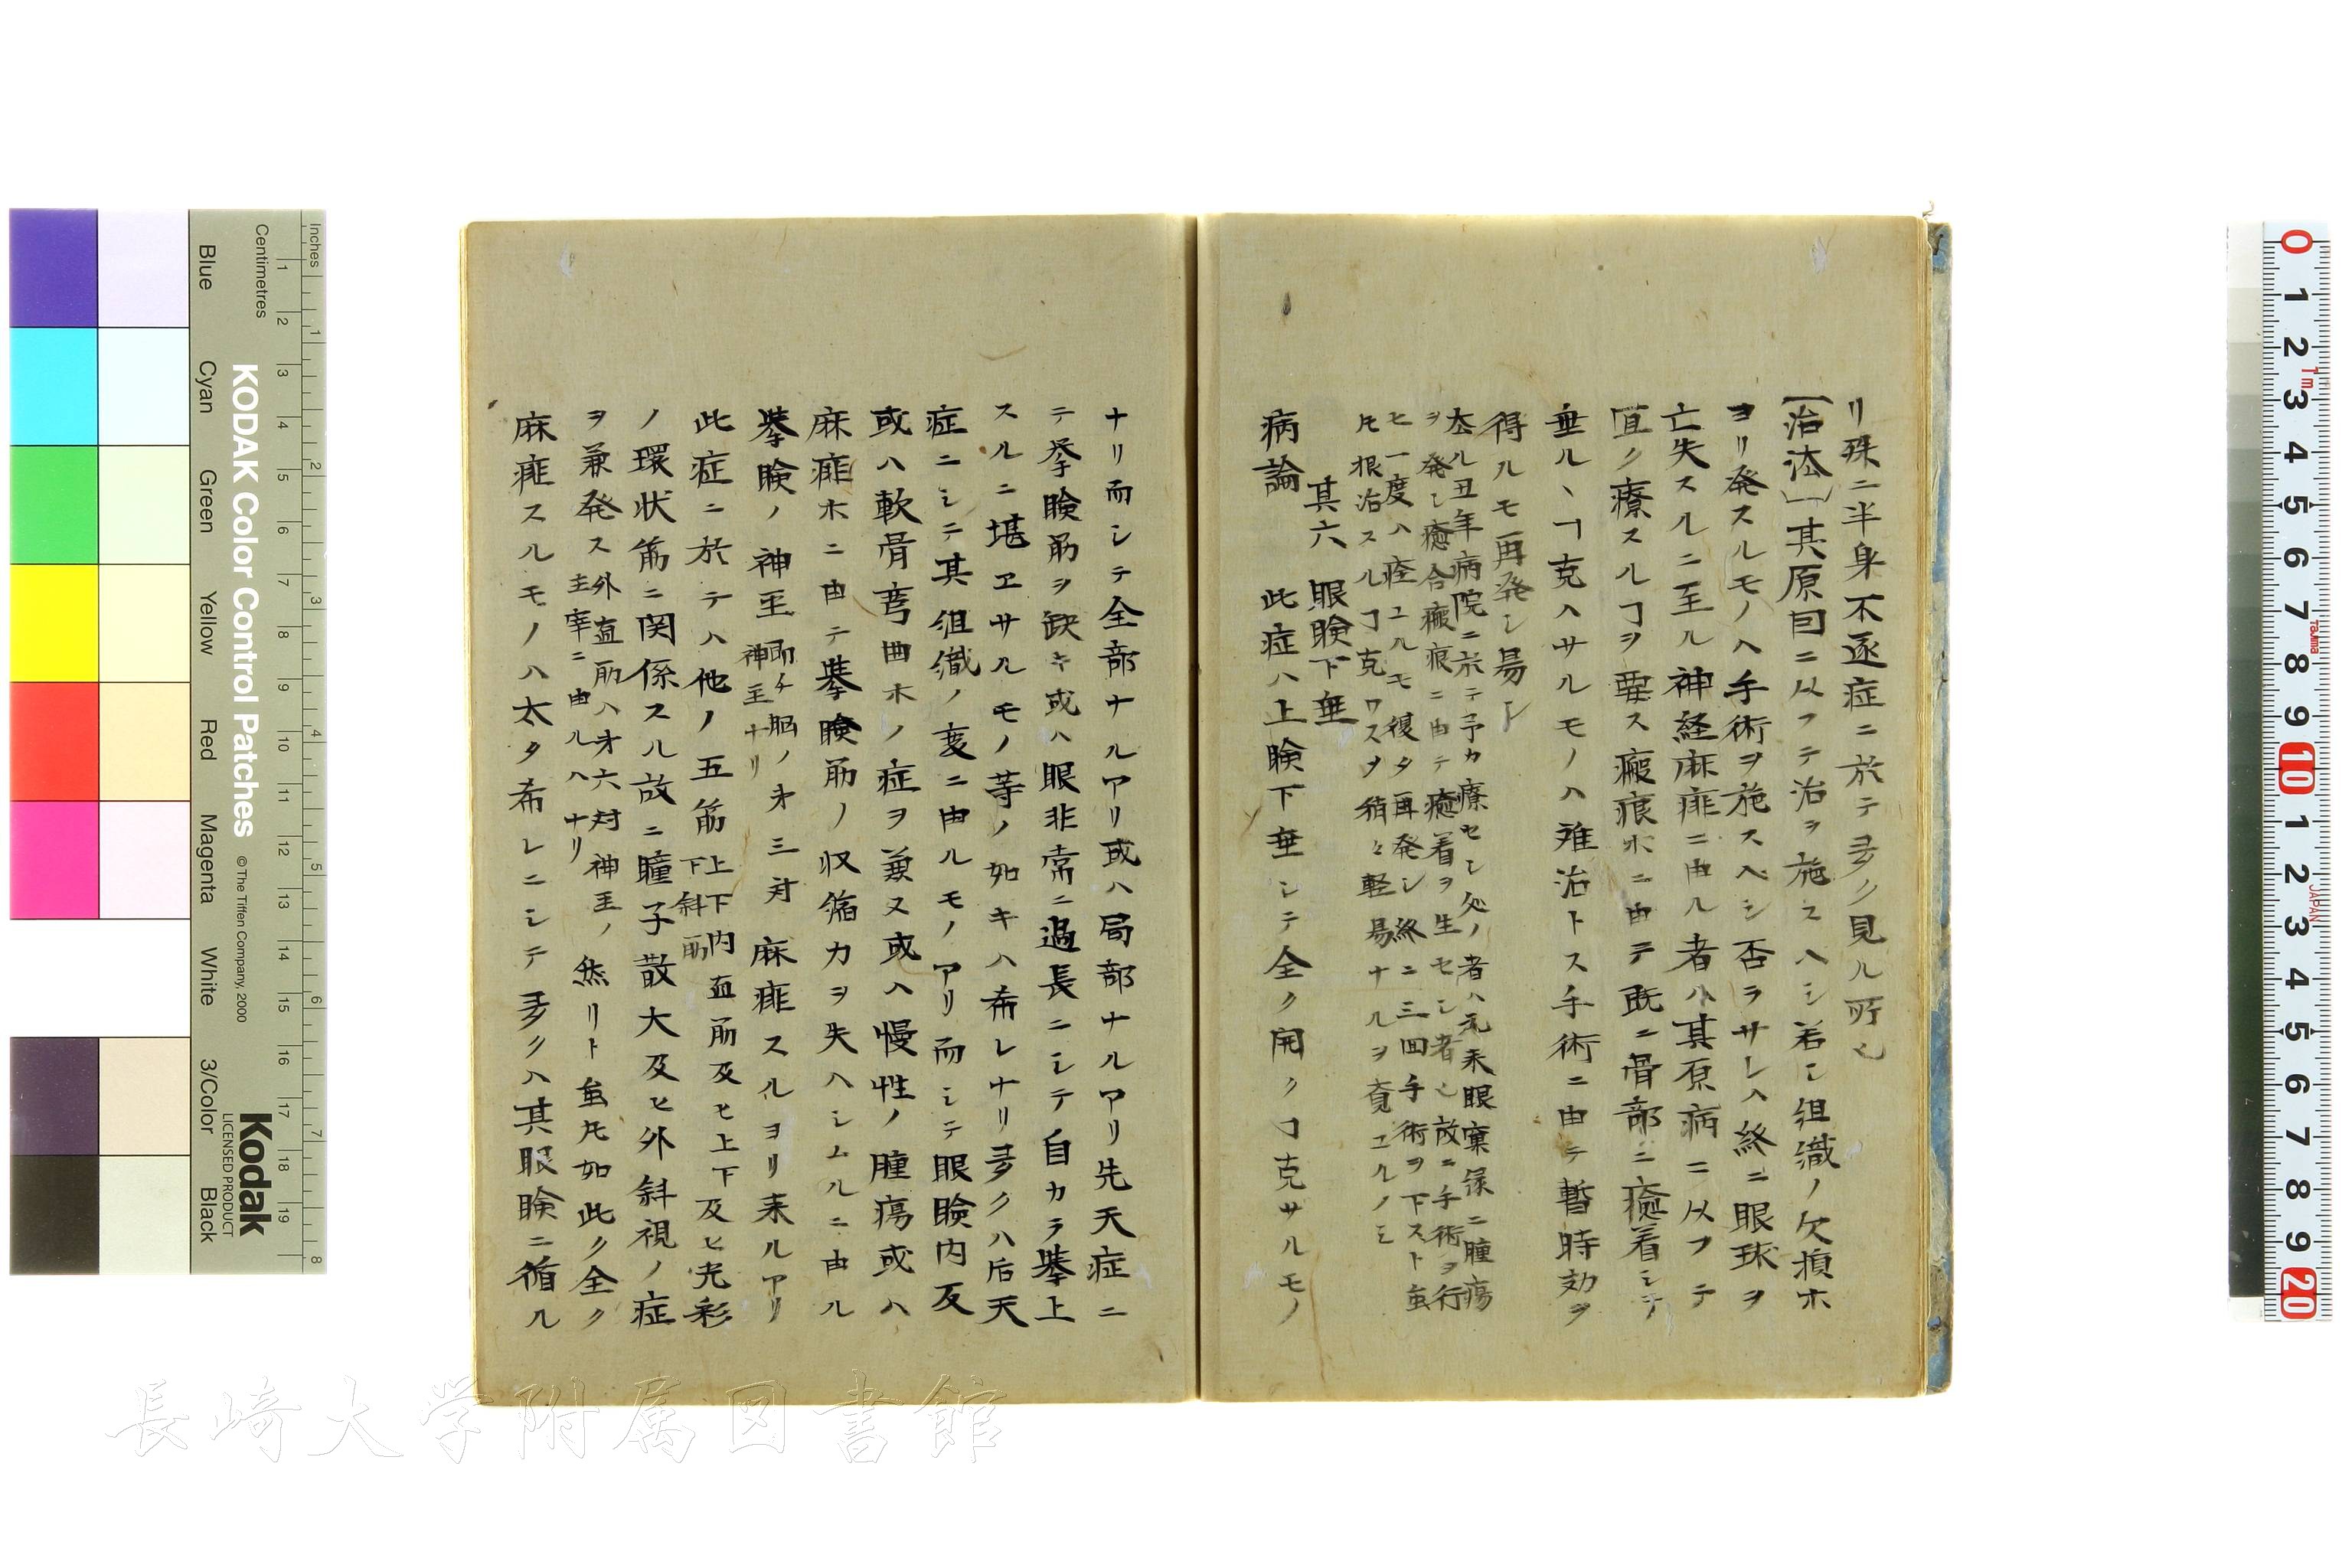 リ殊ニ半身不遂症ニ於テ多ク見ル所也
[治法]其原因ニ从フテ治ヲ施スヘシ若シ組織ノ欠損ホ
ヨリ発スルモノハ手術ヲ施スヘシ否ラサレハ終ニ眼球ヲ
亡失スルニ至ル神経麻痱ニ由ル者ハ其原病ニ从フテ
宜ク療スルヿヲ要ス瘢痕ホニ由テ既ニ骨部ニ癒着シテ
垂ルヽヿ克ハサルモノハ難治トス手術ニ由テ暫時効ヲ
得ルモ再発シ易シ
去ル丑年病院ニ於テ予カ療セシ処ノ者ハ元来眼窠縁ニ腫瘍
ヲ発シ癒合瘢痕ニ由テ癒着ヲ生セシ者也故ニ手術ヲ行
ヒ一度ハ痊ユルモ復タ再発シ終ニ三回手術ヲ下スト䖝
㐧根治スルヿ克ワス只稍々軽易ナルヲ覚ユルノミ
其六 眼瞼下垂
病論 此症ハ上瞼下垂シテ全ク開クヿ克サルモノ
ナリ而シテ全部ナルアリ或ハ局部ナルアリ先天症ニ
テ挙瞼筋ヲ缺キ或ハ眼非常ニ過長ニシテ自カラ挙上
スルニ堪ヱサルモノ等ノ如キハ希レナリ多クハ后天
症ニシテ其組織ノ変ニ由ルモノアリ而シテ眼瞼内反
或ハ軟骨弯曲ホノ症ヲ兼ヌ或ハ慢性ノ腫瘍或ハ
麻痱ホニ由テ挙瞼筋ノ収縮力ヲ失ハシムルニ由ル
挙瞼ノ神圣 即チ脳ノ㐧三対神圣ナリ 麻痱スルヨリ来ルアリ
此症ニ於テハ他ノ五筋 上下内直筋及ヒ下斜筋 及ヒ光彩
ノ環状筋ニ関係スル故ニ瞳子散大及ヒ外斜視ノ症
ヲ兼発ス 外直筋ハ㐧六対神圣ノ主宰ニ由ルハナリ 然リト䖝㐧如此ク全ク
麻痱スルモノハ太タ希レニシテ多クハ其眼瞼ニ循ル
Blue
Cyan
Green
Yellow
Red
Magenta
White
3/Color
Black
Inches
Centimetres
KODAK Color Control Patches
© The Tiffen Company, 2000
Kodak
LICENSED PRODUCT
長崎大学附属図書館